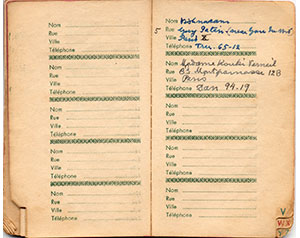 Nom
Rue
Ville
Téléphone
Nom
Rue
Ville
Téléphone
Nom
Rue
Ville
Téléphone
Nom
Rue
Ville
Téléphone
Nom
Rue
Ville
Téléphone
5
Nom
Rue
Ville Paris X
Téléphone Tru. 65-12
Nom Madame
Rue Bd Montparnasse 12B
Ville Paris
Téléphone Dan 99.19
Nom
Rue
Ville
Téléphone
Nom
Rue
Ville
Téléphone
Nom
Rue
Ville
Téléphone
V